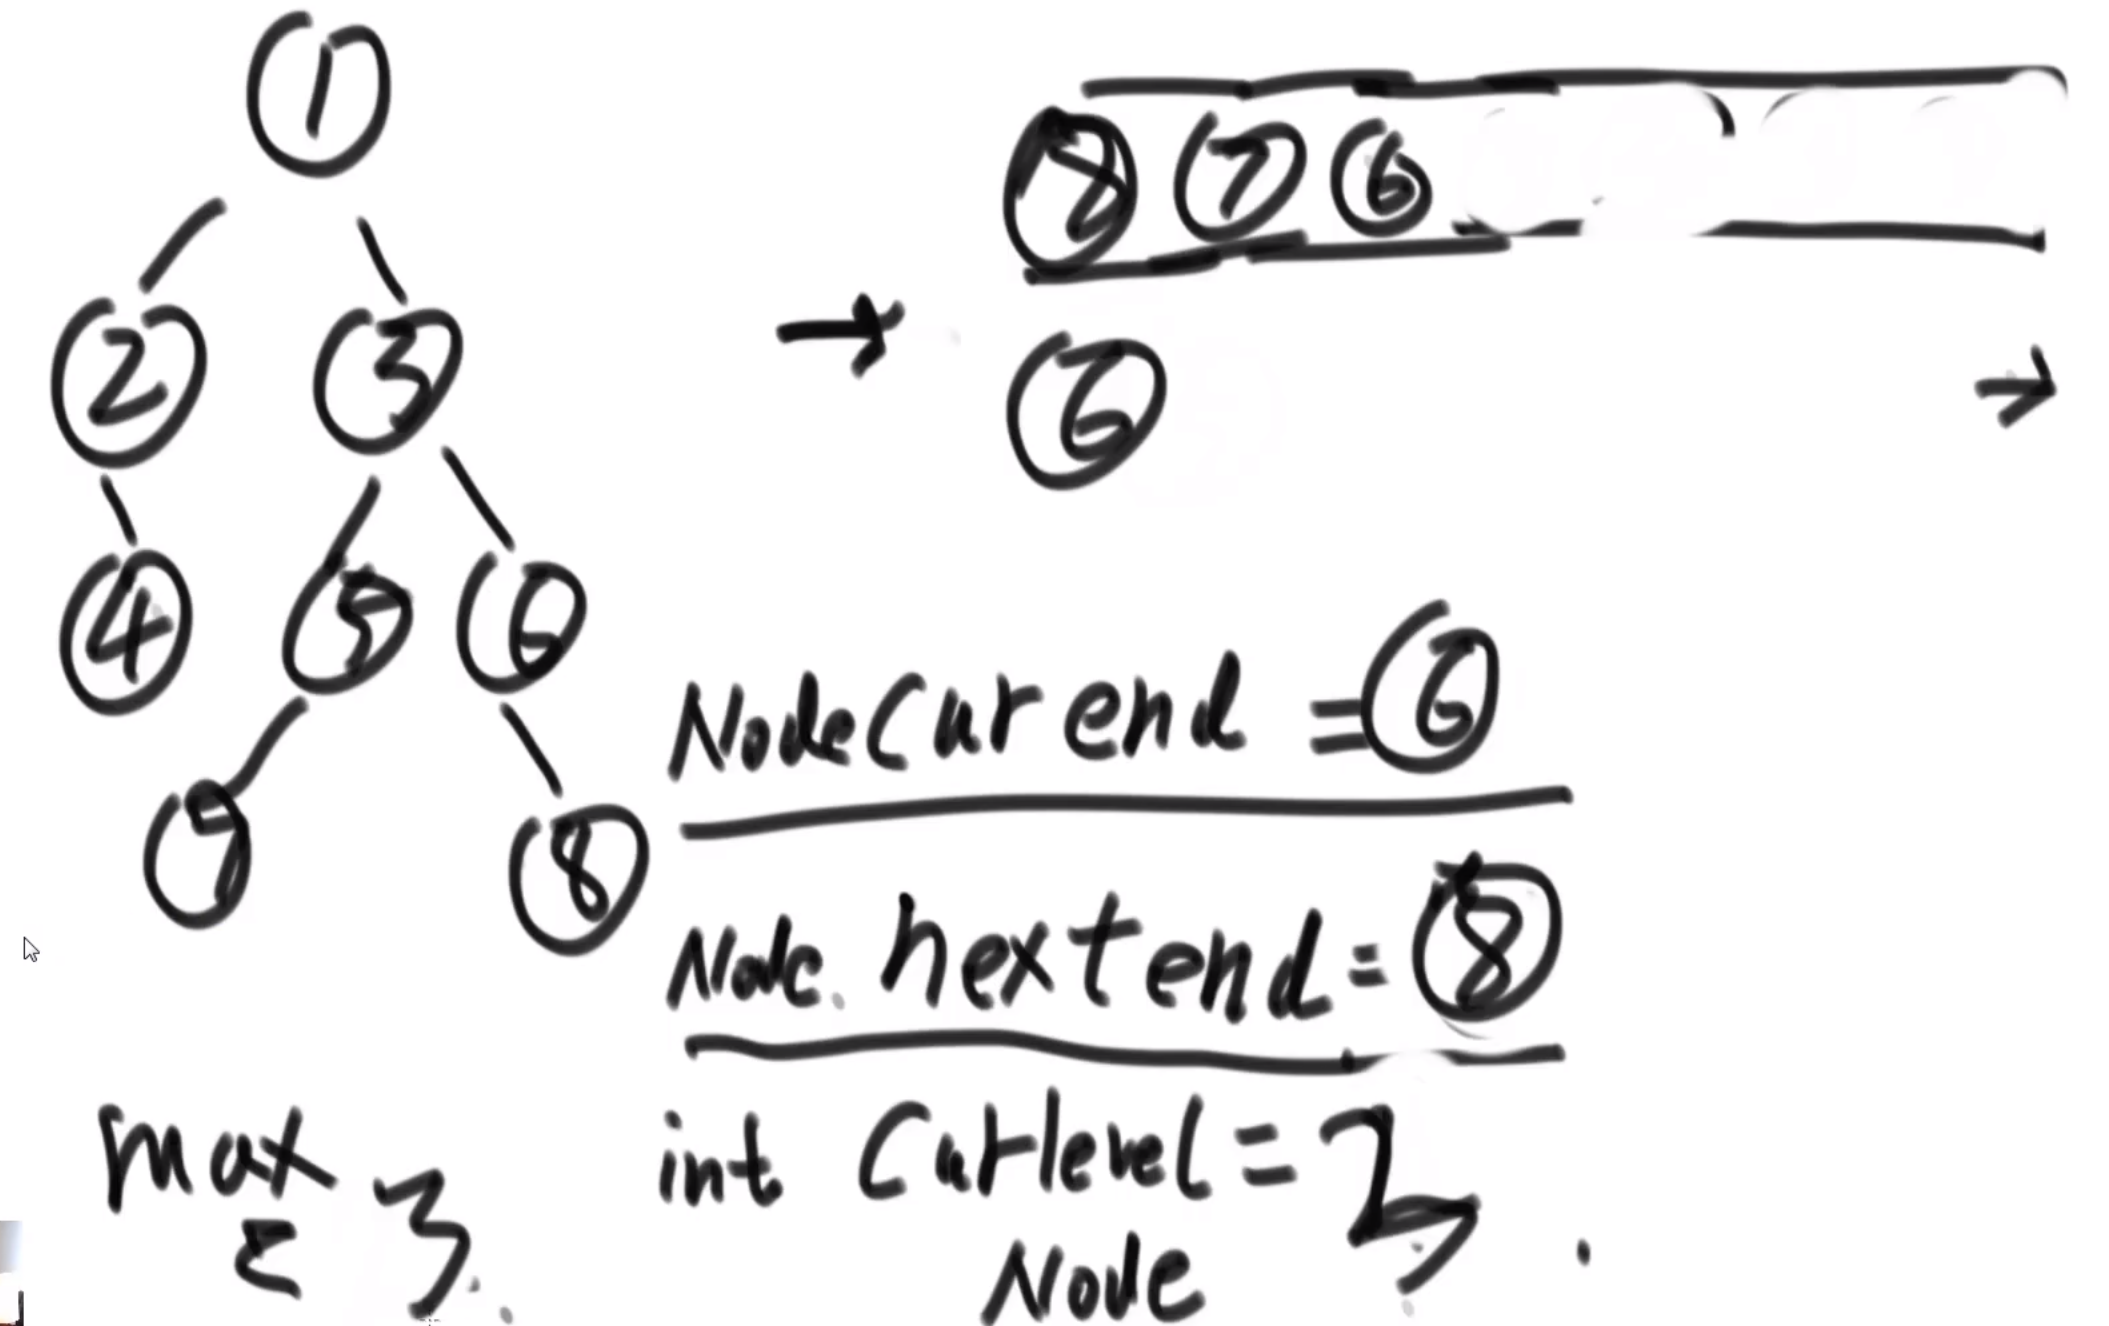 1
2 3
4 5 6
7 8
8 7 6
6
NodeCurend = 6
Node nextend = 8
int Curlevel =
Node
max
3